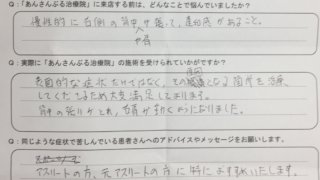 Q：「あんさんぶる治療院」に来店する前は、どんなことで悩んでいましたか？
慢性的に右側の背中が張って、違和感があること。
Q：実際に「あんさんぶる治療院」の施術を受けられていかがですか？
表面的な症状だけではなく、その原因となる箇所を治療
してくださるため大変満足しております。
背中の張りがとれ、首が動くようになりました。
Q：同じような症状で苦しんでいる患者さんへのアドバイスやメッセージをお願いします。
アスリートの方、元アスリートの方に特におすすめいたします。